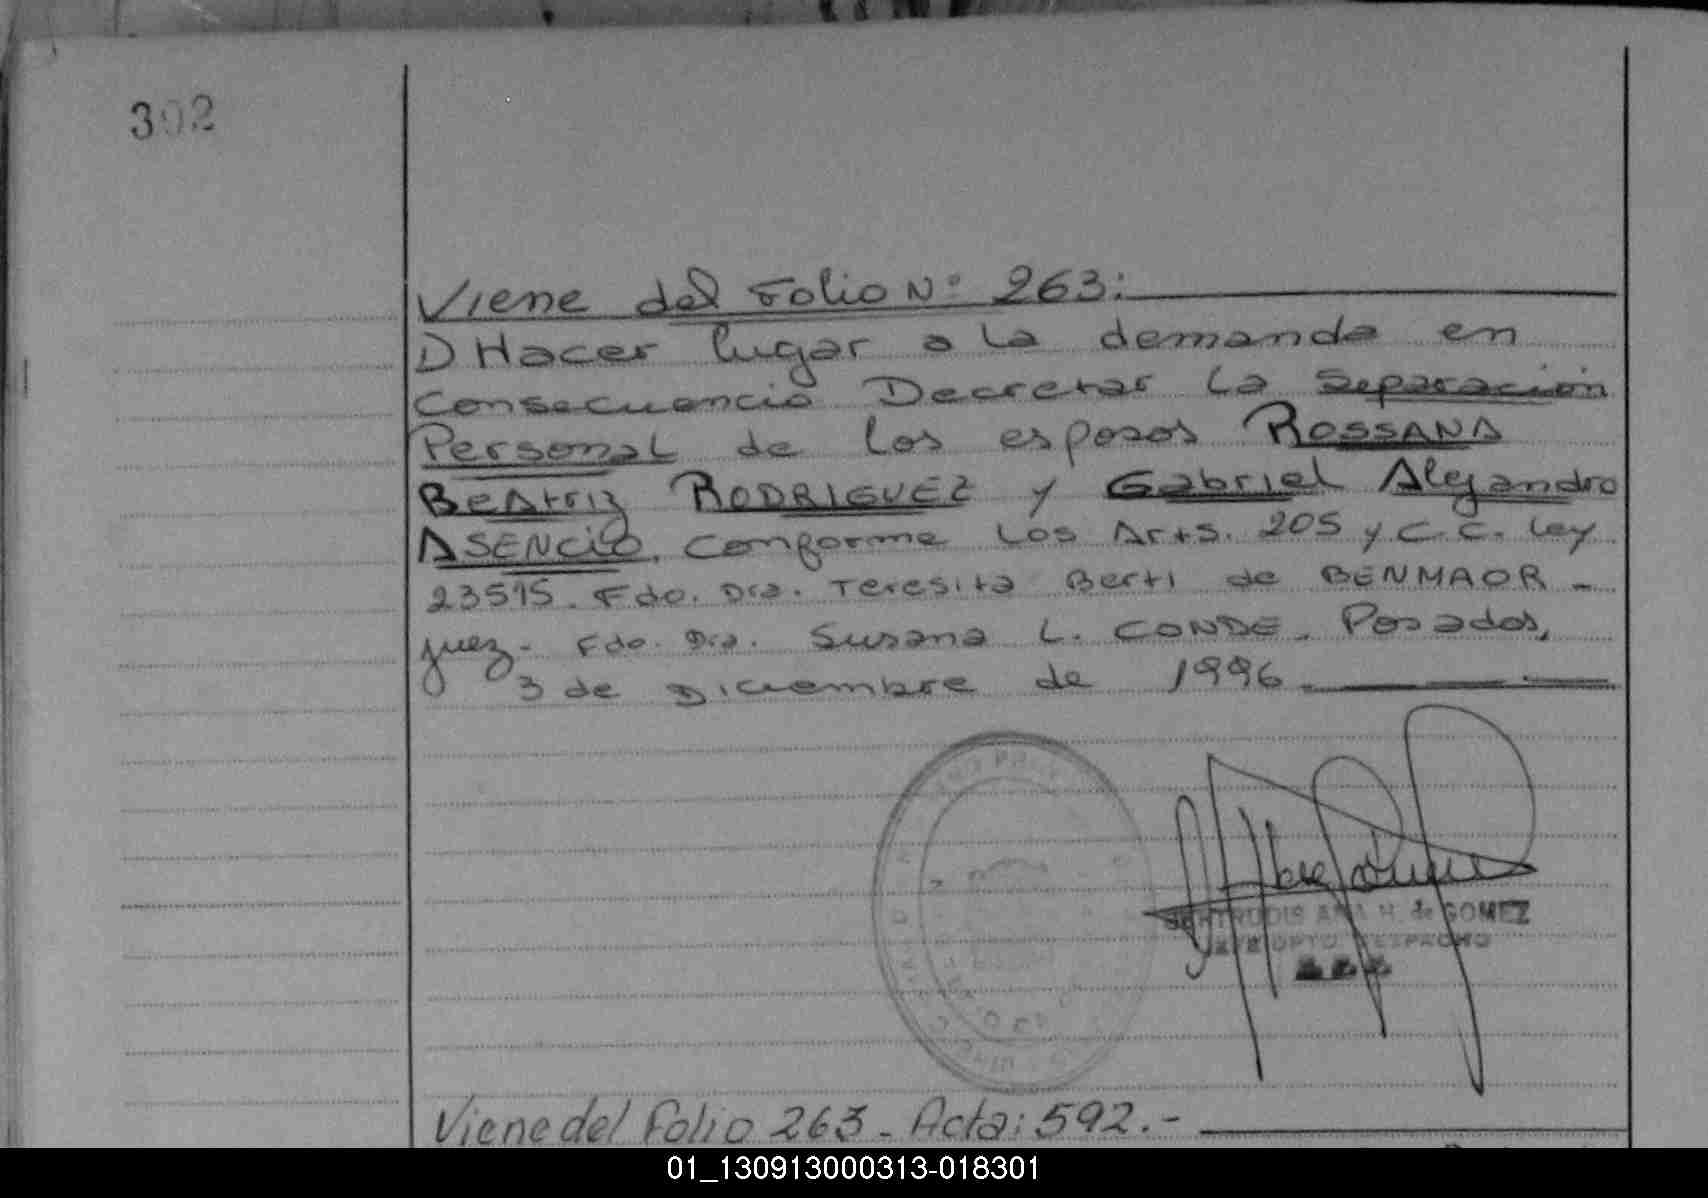 302
Viene del Folio Nº 263:
1) Hacer lugar a la demanda en
Consecuencia Decretar la Separación
Personal de los esposos ROSSANA
BEAtriz RODRIGUEZ y Gabriel Alejandro
ASENCIO. Conforme los Arts. 205 y C.C. Ley
23515. Fdo. Dra. Teresita Berti de BENMAOR -
juez - Fdo. Dra. Susana L. CONDE. Posadas,
3 de Diciembre de 1996
GERTRUDIS ANA H. de GOMEZ
JEFE DPTO DESPACHO
Viene del Folio 263 - Acta: 592.-
01_130913000313-018301